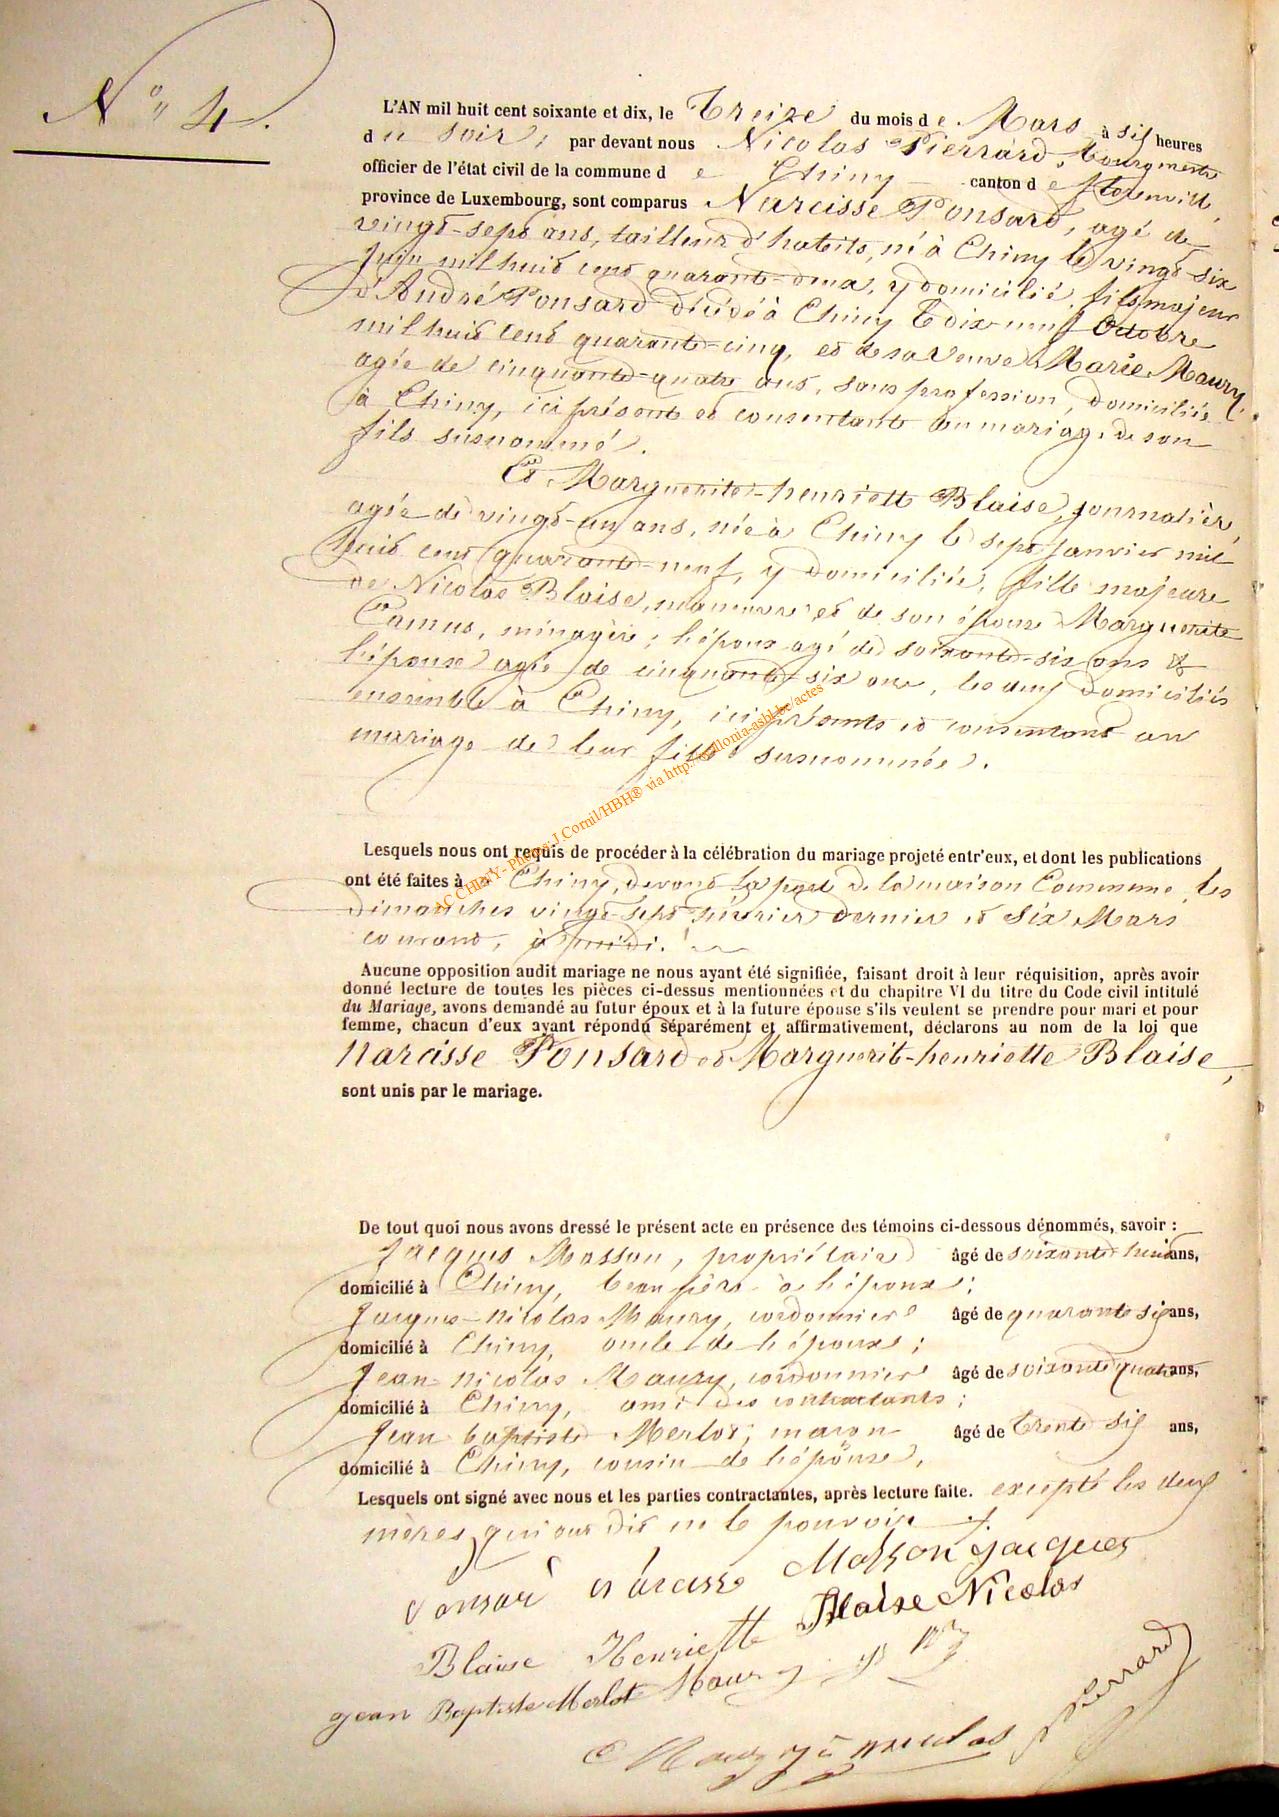 N° 4.
L'AN mil huit cent soixante et dix, le Treize du mois de Mars à six heures
du soir, par devant nous Nicolas Pierrard, bourgmestre
officier de l'état civil de la commune de Chiny canton de florenville,
province de Luxembourg, sont comparus Narcisse Ponsard, agé de
vingt-sept ans, tailleur d'habits, né à Chiny le vingt six
Juin mil huit cent quarante-deux, y domicilié, fils majeur
d'André Ponsard décédé à Chiny le dix-neuf Octobre
mil huit cent quarante-cinq, et de sa Veuve Marie Maury,
agée de cinquante-quatre ans, sans profession, domiciliée
à Chiny, ici présente et consentante au mariage de son
fils susnommé.
Et Marguerite-henriette Blaise, journalière,
agée de vingt-un ans, née à Chiny le sept Janvier mil
huit cent quarante-neuf, y domiciliée, fille majeure
de Nicolas Blaise, manœuvre et de son épouse Marguerite
Camus, ménagère; l'époux agé de soixante-six ans &
l'épouse agée de cinquante-six ans, les deux domiciliés
ensemble à Chiny, ici présents et consentans au
mariage de leur fille susnommée.
AC CHINY - Photos J.Cornil/HBH® via http://wallonia-asbl.be/actes
Lesquels nous ont requis de procéder à la célébration du mariage projeté entr'eux, et dont les publications
ont été faites à Chiny, devant la porte de la maison Commune, les
dimanches vingt-sept février dernier et Six Mars
courant, à midi.
Aucune opposition audit mariage ne nous ayant été signifiée, faisant droit à leur réquisition, après avoir
donné lecture de toutes les pièces ci-dessus mentionnées et du chapitre VI du titre du Code civil intitulé
du Mariage, avons demandé au futur époux et à la future épouse s'ils veulent se prendre pour mari et pour
femme, chacun d'eux ayant répondu séparément et affirmativement, déclarons au nom de la loi que
Narcisse Ponsard et Marguerite-henriette Blaise,
sont unis par le mariage.
De tout quoi nous avons dressé le présent acte en présence des témoins ci-dessous dénommés, savoir :
Jacques Masson, propriétaire âgé de soixante huit ans,
domicilié à Chiny, beau père à l'époux;
Jacques-nicolas Maury, cordonnier âgé de quarante six ans,
domicilié à Chiny, oncle de l'époux;
Jean nicolas Maury, cordonnier âgé de soixante quatre ans,
domicilié à Chiny, ami des contractants;
Jean baptiste Merlot, maçon âgé de trente six ans,
domicilié à Chiny, cousin de l'épouse,
Lesquels ont signé avec nous et les parties contractantes, après lecture faite. excepté les deux
mères qui ont dit ne le pouvoir
Ponsard Narcisse Masson Jacques
Blaise Henriette Blaise Nicolas
jean Baptiste Merlot Maury
Maury nicolas Pierrard